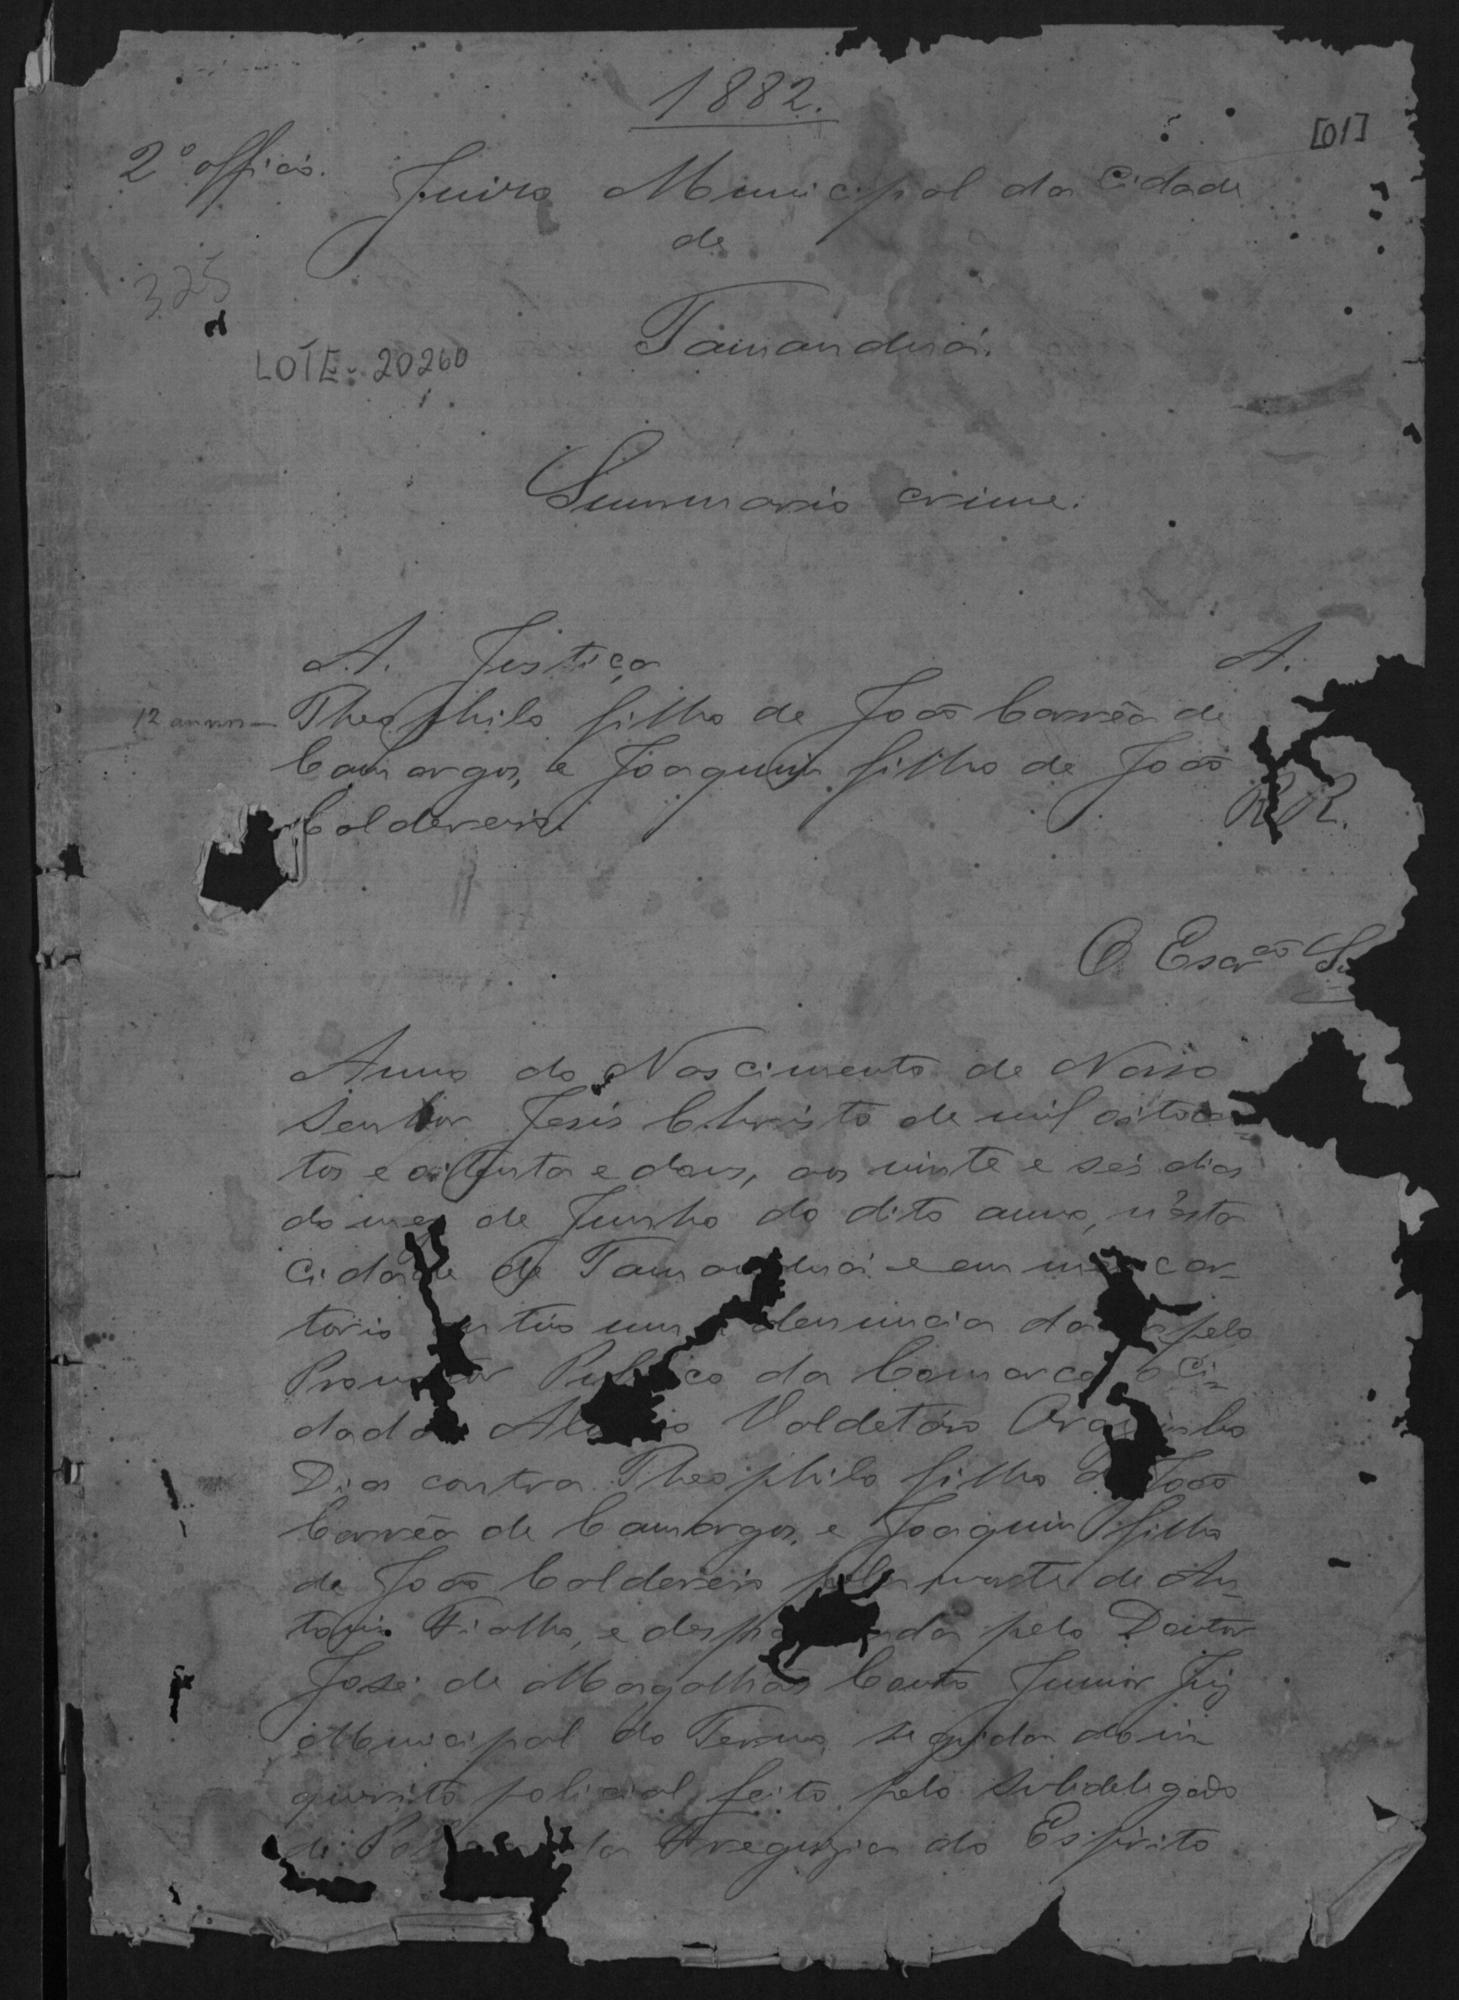 1882.
[01]
2º officio.
Juizo Municipal da Cidade
de
325
Tamanduá.
LOTE- 20260
Summario crime.
A. Justiça A.
12 annos - Theophilo filho de João Corrêa de
Camargos, e Joaquim filho de João
Caldereiro. RR.
O Escr.ão
Anno do Nascimento de Nosso
Senhor Jesús Christo de mil oitocen-
tos e oitenta e dous, aos vinte e seis dias
do mez de Junho do dito anno, n'esta
Cidade de Tamanduá e em meu car-
torio uma denuncia da pelo
Promotor Publico da Comarca o Ci-
dadão Valdetáro
Dias contra Theophilo filho de João
Corrêa de Camargos, e Joaquim filho
de João Caldereiro pela morte de An-
tonio Fialho, e despachada pelo Doutor
José de Magalhães Couto Junior Juiz
Municipal do Termo seguida do in-
querito policial feito pelo subdelegado
de Policia da Freguezia do Espirito